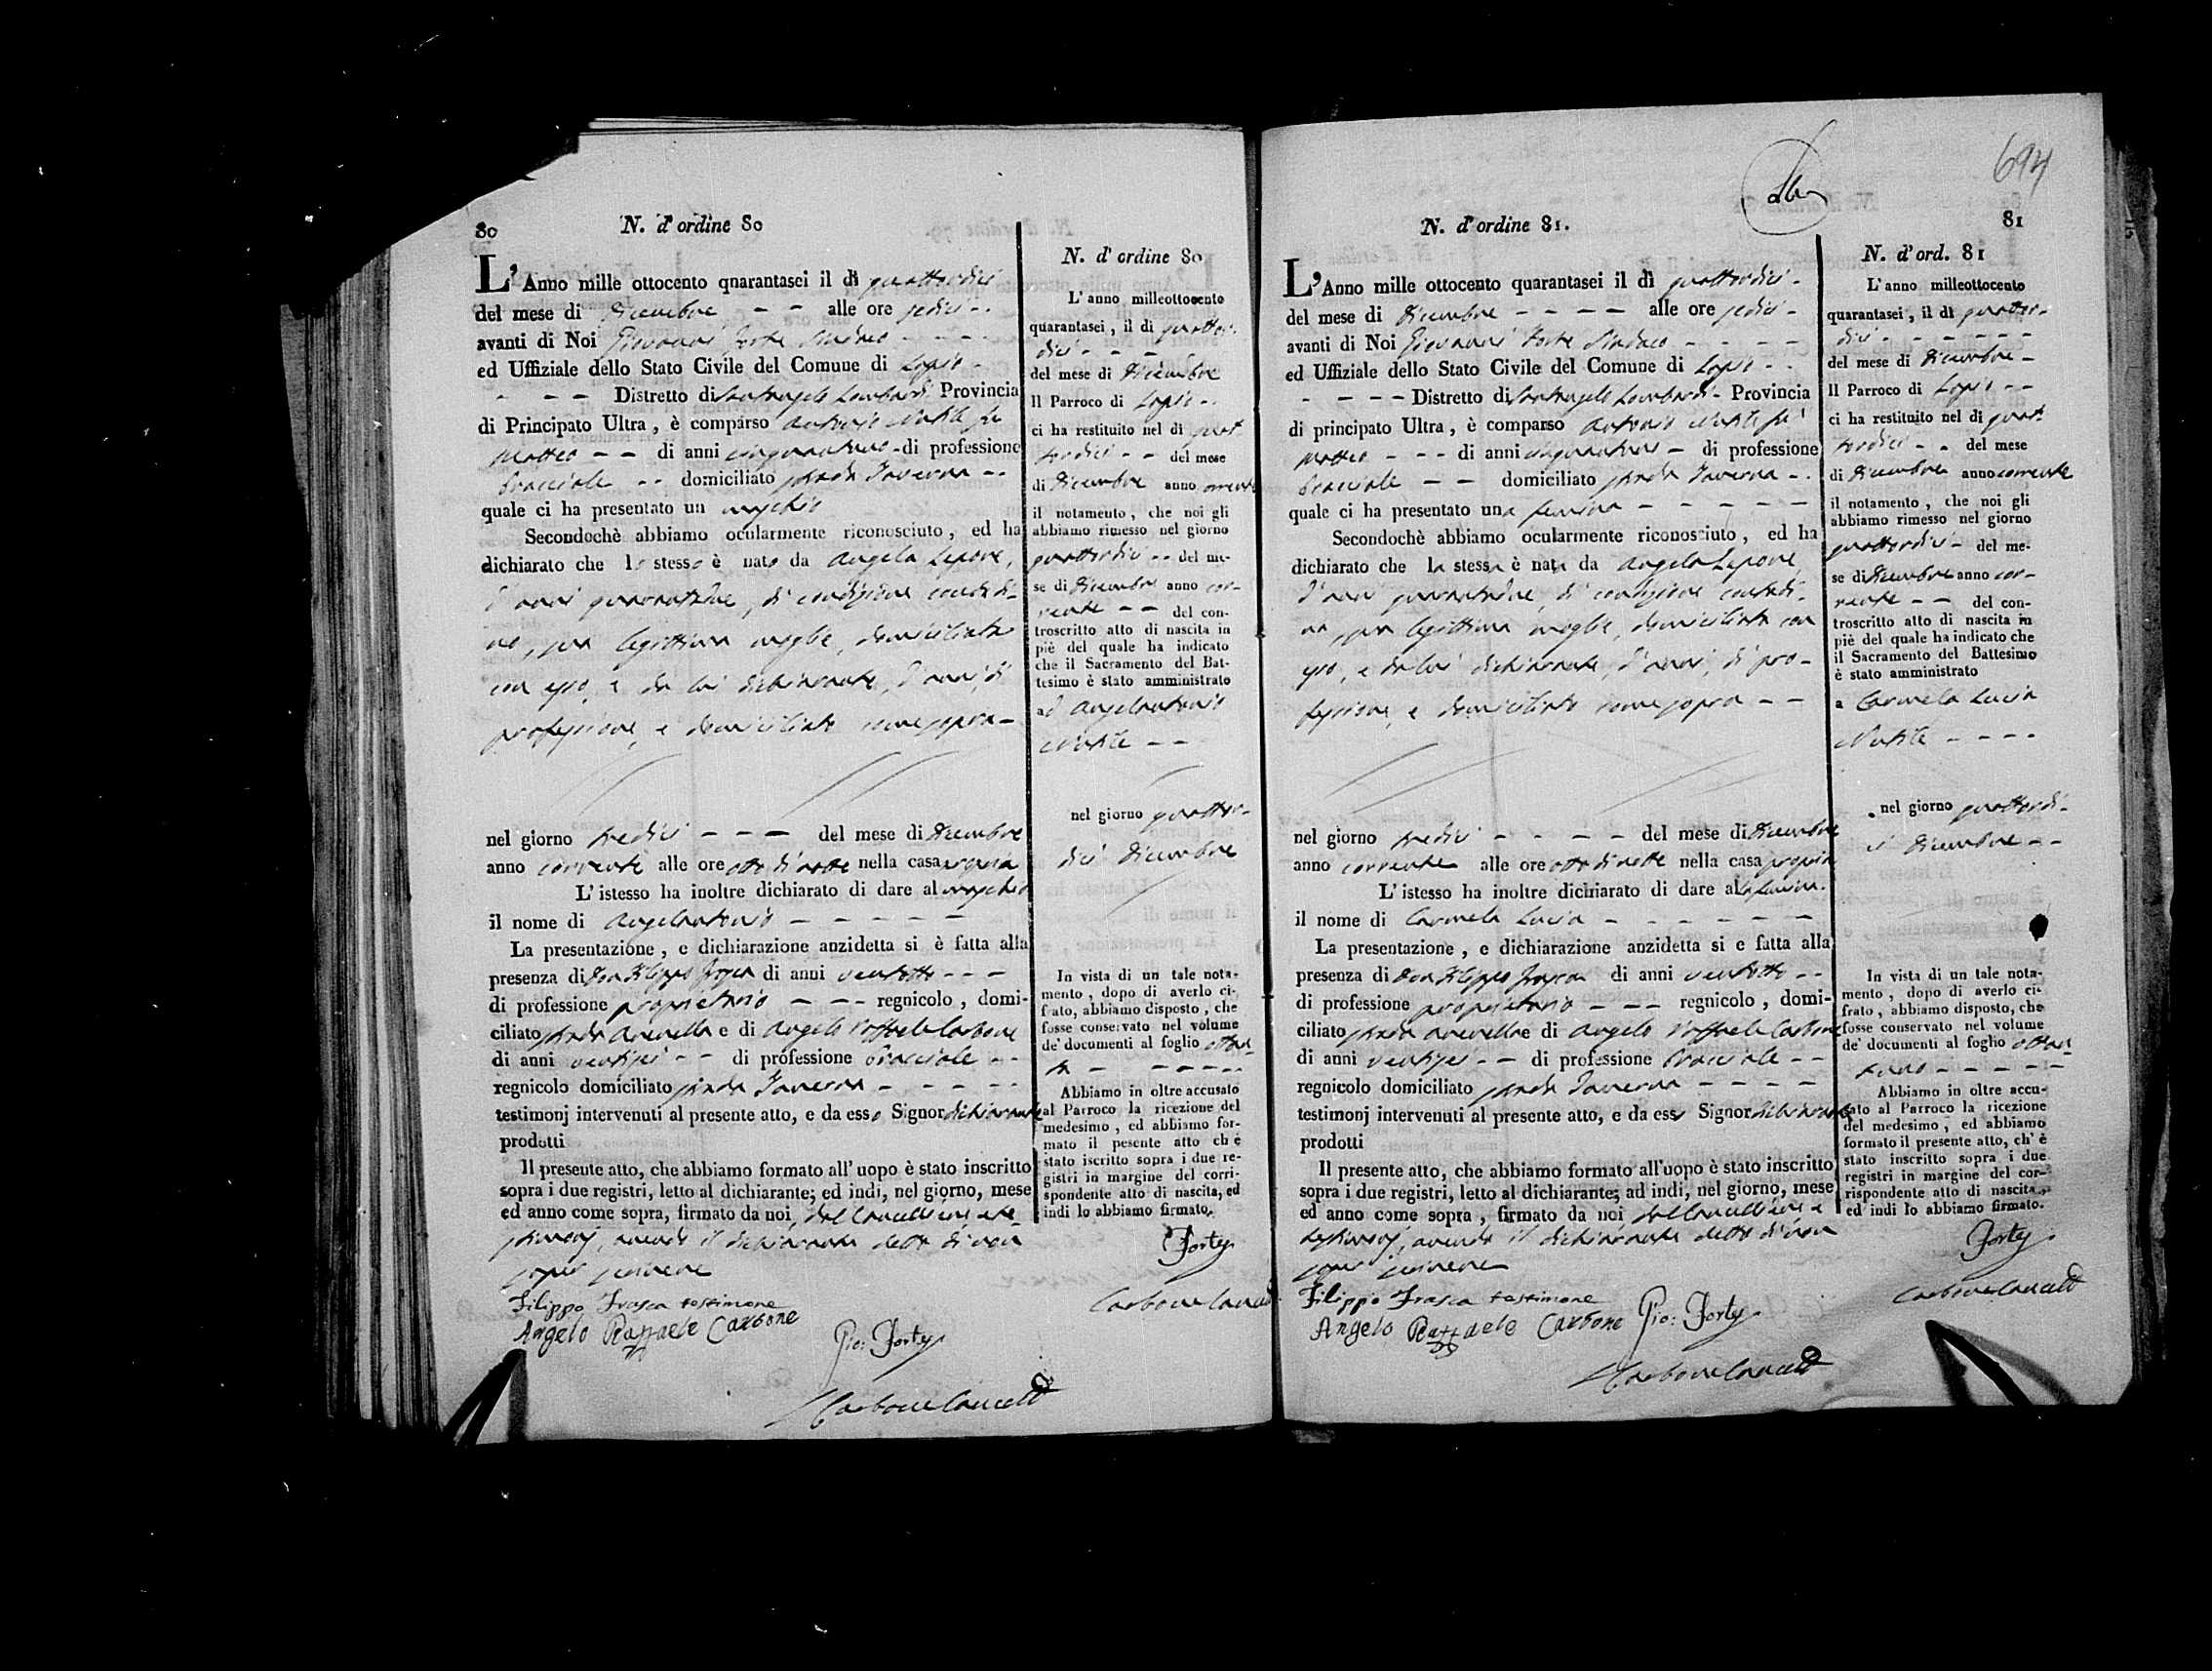 80
N. d'ordine 80
L'Anno mille ottocento qnarantasei il dì quattordici
del mese di Dicembre - - alle ore sedici - .
avanti di Noi Giovanni Forte Sindaco - - - -
ed Uffiziale dello Stato Civile del Comune di Lapio -
- - - Distretto di Santangelo Lombardi Provincia
di Principato Ultra, è comparso Antonio fu
Matteo - - di anni - di professione
bracciale - - domiciliato strada Taverna - -
quale ci ha presentato un maschio
Secondochè abbiamo ocularmente riconosciuto, ed ha
dichiarato che lo stesso è nato da Angela Lepore,
d'anni quarantadue, di condizione contadi-
na, sua legittima moglie, domiciliata
con esso, e da lui dichiarante, d'anni, di
professione, e domiciliato come sopra -
nel giorno tredici - - - del mese di Dicembre
anno corrente alle ore otto di notte nella casa propria
L'istesso ha inoltre dichiarato di dare al maschio
il nome di Angelantonio - - - - -
La presentazione, e dichiarazione anzidetta si è fatta alla
presenza di Don Filippo Frasca di anni ventotto - - -
di professione proprietario - - - regnicolo, domi-
ciliato strada e di Angelo Raffaele Carbone
di anni ventisei - - di professione bracciale - -
regnicolo domiciliato strada Taverna - - - - -
testimonj intervenuti al presente atto, e da esso Signor dichiarante
prodotti
Il presente atto, che abbiamo formato all'uopo è stato inscritto
sopra i due registri, letto al dichiarante; ed indi, nel giorno, mese
ed anno come sopra, firmato da noi, dal Cancelliere e te-
stimonj, avendo il dichiarante detto di non
saper scrivere
Filippo Frasca testimone
Angelo Raffaele Carbone
Gio: Forte
Carbone Cancell
N. d'ordine 80
L'anno milleottocento
quarantasei, il di quattor-
dici - - -
del mese di Dicembre
Il Parroco di Lapio - .
ci ha restituito nel di quat
tordici - - del mese
di Dicembre anno corrente
il notamento, che noi gli
abbiamo rimesso nel giorno
quattordici - - del me-
se di Dicembre anno cor-
rente - - del con-
troscritto atto di nascita in
piè del quale ha indicato
che il Sacramento del Bat-
tesimo è stato amministrato
ad Angelantonio
nel giorno quattor-
dici Dicembre
In vista di un tale nota-
mento, dopo di averlo ci-
frato, abbiamo disposto, che
fosse conservato nel volume
de' documenti al foglio ottan-
ta - - - - - -
Abbiamo in oltre accusato
al Parroco la ricezione del
medesimo, ed abbiamo for-
mato il pesente atto ch'è
stato iscritto sopra i due re-
gistri in margine del corri-
spondente atto di nascita, ed
indi lo abbiamo firmato.
Forte
Carbone Cancell
694
81
N. d'ordine 81.
L'Anno mille ottocento quarantasei il dì quattordici -
del mese di Dicembre - - - - alle ore sedici -
avanti di Noi Giovanni Forte Sindaco - - - -
ed Uffiziale dello Stato Civile del Comune di Lapio - .
- - - - Distretto di Santangelo Lombardi - Provincia
di principato Ultra, è comparso Antonio fu
Matteo - - - di anni - di professione
bracciale - - domiciliato strada Taverna - .
quale ci ha presentato una femina - - - - -
Secondochè abbiamo ocularmente riconosciuto, ed ha
dichiarato che la stessa è nata da Angela Lepore,
d'anni quarantadue, di condizione contadi-
na, sua legittima moglie, domiciliata con
esso, e da lui dichiarante, d'anni, di pro-
fessione, e domiciliato come sopra - -
nel giorno tredici - - - - del mese di Dicembre
anno corrente alle ore otto di notte nella casa propria
L'istesso ha inoltre dichiarato di dare alla femina.
il nome di Carmela Lucia - - - - - -
La presentazione, e dichiarazione anzidetta si e fatta alla
presenza di Don Filippo Frasca di anni ventotto - -
di professione proprietario - - - regnicolo, domi-
ciliato strada e di Angelo Raffaele Carbone
di anni ventisei - - di professione bracciale - -
regnicolo domiciliato strada Taverna - - - -
testimonj intervenuti al presente atto, e da esso Signor dichiarante
prodotti
Il presente atto, che abbiamo formato all'uopo è stato inscritto
sopra i due registri, letto al dichiarante; ad indi, nel giorno, mese
ed anno come sopra, firmato da noi dal Cancelliere e
testimonj, avendo il dichiarante detto di non
saper scrivere
Filippo Frasca testimone
Angelo Raffaele Carbone Gio: Forte
Carbone Cancell
N. d'ord. 81
L'anno milleottocento
quarantasei, il dì quattor-
dici - - - - - -
del mese di Dicembre -
Il Parroco di Lapio - -
ci ha restituito nel di quat
tordici - - del mese
di Dicembre anno corrente
il notamento, che noi gli
abbiamo rimesso nel giorno
quattordici - del me-
se di Dicembre anno cor-
rente - - del con-
troscritto atto di nascita in
piè del quale ha indicato che
il Sacramento del Battesimo
è stato amministrato
a Carmela Lucia
nel giorno quattordi-
ci Dicembre - -
In vista di un tale nota-
mento, dopo di averlo ci-
frato, abbiamo disposto, che
fosse conservato nel volume
de' documenti al foglio ottan-
tuno - - - - -
Abbiamo in oltre accu-
sato al Parroco la ricezione
del medesimo, ed abbiamo
formato il presente atto, ch'è
stato inscritto sopra i due
registri in margine del cor-
rispondente atto di nascita,
ed indi lo abbiamo firmato.
Forte
Carbone Cancell